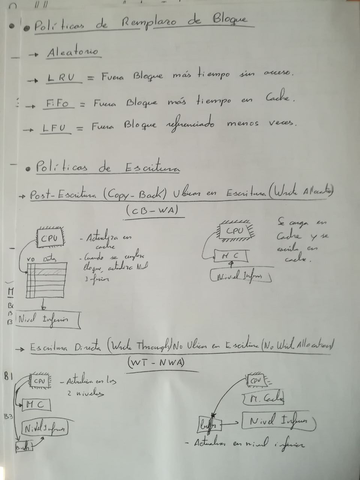 • Políticas de Remplazo de Bloque
→ Aleatorio
→ LRU = Fuera Bloque más tiempo sin acceso.
→ FiFo = Fuera Bloque más tiempo en Cache.
→ LFU = Fuera Bloque referenciado menos veces.
• Políticas de Escritura
→ Post-Escritura (Copy-Back) Ubicar en Escritura (
(CB-WA)
CPU
- Actualiza en
cache
- Cuando se
bloque, Nivel
inferior
Nivel Inferior
CPU
MC
Nivel Inferior
Se carga en
Cache y se
escribe en
cache.
→ Escritura Directa (
(WT-NWA)
B.1
CPU
- Actualiza en los
2 niveles
MC
B.3
Nivel Inferior
CPU
M. Cache
Nivel Inferior
- Actualiza en nivel inferior